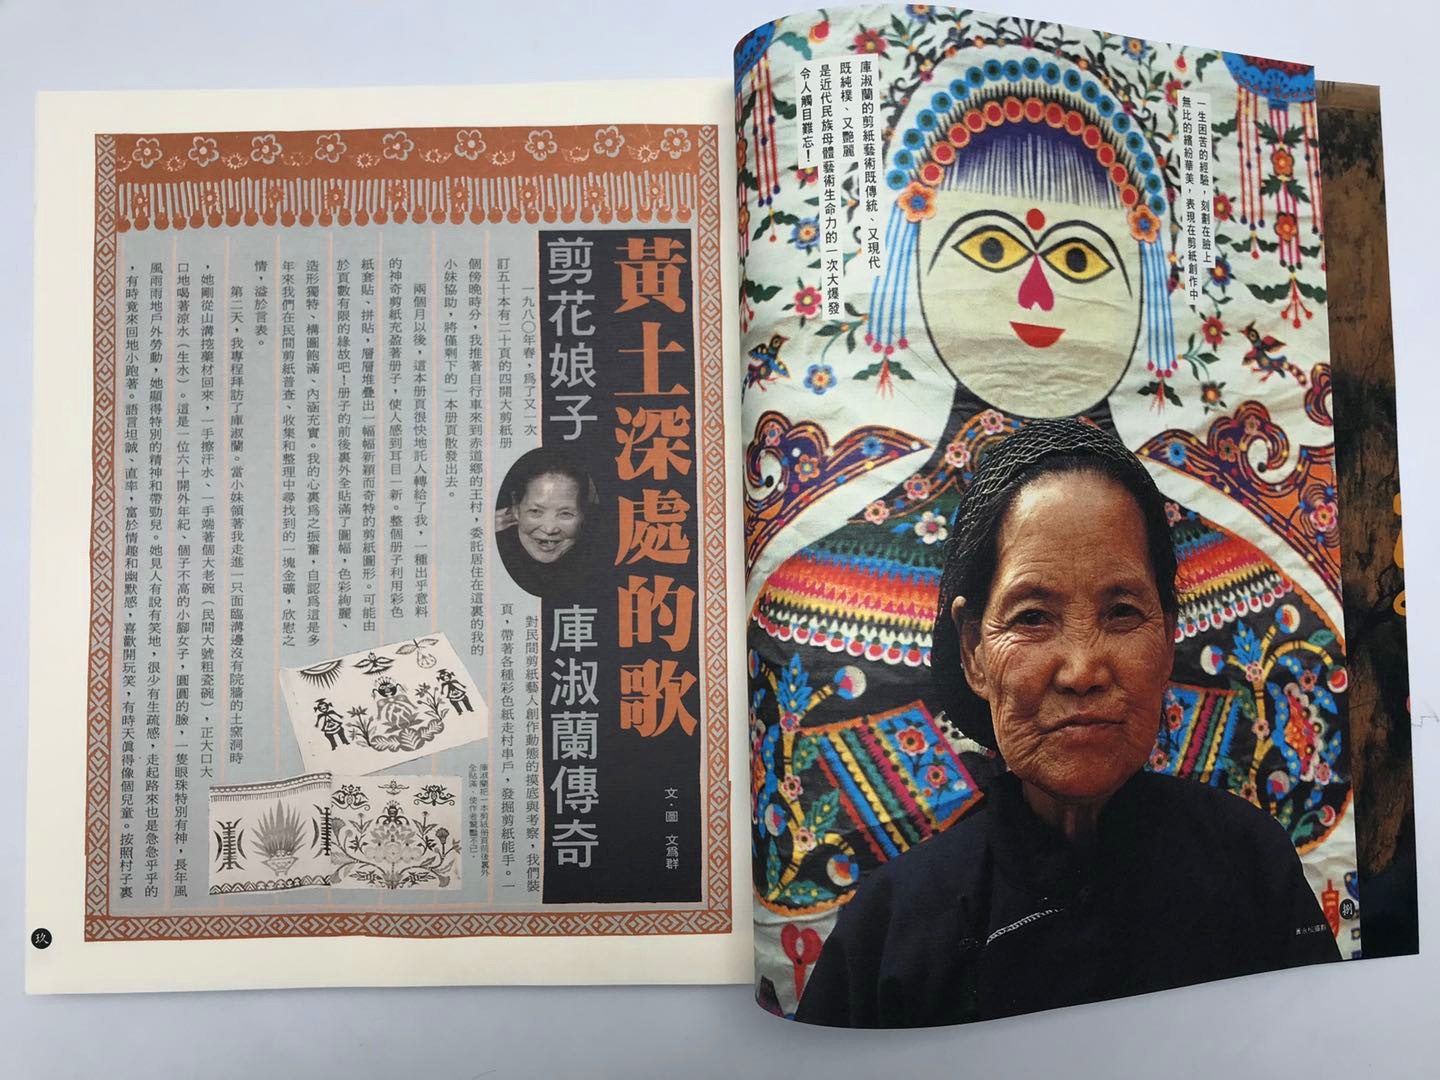 一生困苦的經驗，刻劃在臉上
無比的繽紛華美，表現在剪紙創作中
庫淑蘭的剪紙藝術既傳統、又現代
既純樸、又艷麗
是近代民族母體藝術生命力的一次大爆發
令人觸目難忘！
捌
黃永松攝影
黃土深處的歌
文・圖 文為群
剪花娘子 庫淑蘭傳奇
一九八〇年春，爲了又一次
對民間剪紙藝人創作動態的摸底與考察，我們裝
訂五十本有二十頁的四開大剪紙册
頁，帶著各種彩色紙走村串戶，發掘剪紙能手。一
個傍晚時分，我推著自行車來到赤道鄉的王村，委託居住在這裏的我的
小妹協助，將僅剩下的一本册頁散發出去。
兩個月以後，這本册頁很快地託人轉給了我，一種出乎意料
的神奇剪紙充盈著册子，使人感到耳目一新。整個册子利用彩色
紙套貼、拼貼，層層堆疊出一幅幅新穎而奇特的剪紙圖形。可能由
於頁數有限的緣故吧！册子的前後裏外全貼滿了圖幅，色彩絢麗、
造形獨特、構圖飽滿、內涵充實。我的心裏爲之振奮，自認爲這是多
年來我們在民間剪紙普查、收集和整理中尋找到的一塊金礦，欣慰之
情，溢於言表。
第二天，我專程拜訪了庫淑蘭。當小妹領著我走進一只面臨溝邊沒有院牆的土窰洞時
，她剛從山溝挖藥材回來，一手擦汗水、一手端著個大老碗（民間大號粗瓷碗），正大口大
口地喝著涼水（生水）。這是一位六十開外年紀、個子不高的小腳女子，圓圓的臉，一隻眼珠特別有神，長年風
風雨雨地戶外勞動，她顯得特別的精神和帶勁兒。她見人有說有笑地，很少有生疏感，走起路來也是急急乎乎的
，有時竟來回地小跑著。語言坦誠、直率，富於情趣和幽默感，喜歡開玩笑，有時天真得像個兒童。按照村子裏
庫淑蘭把一本剪紙册頁前後裏外
全貼滿，使作者驚豔不已。
玖